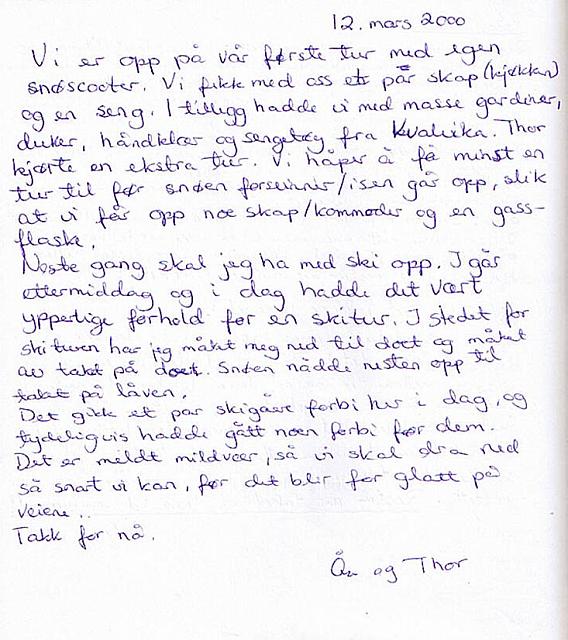 12. mars 2000
Vi er opp på vår første tur med egen
snøscooter. Vi fikk med oss et par skap (kjøkken)
og en seng. I tillegg hadde vi med masse gardiner,
duker, håndklær og sengetøy fra Kvalvika. Thor
kjørte en ekstra tur. Vi håper å få minst en
tur til før snøen forsvinner/isen går opp, slik
at vi får opp noe skap/kommoder og en gass-
flaske.
Neste gang skal jeg ha med ski opp. I går
ettermiddag og i dag hadde det vært
ypperlige forhold for en skitur. I stedet for
skituren har jeg måket meg ned til doet og måket
av takt på doet. Snøen nådde nesten opp til
taket på låven.
Det gikk et par skigåere forbi her i dag, og
tydeligvis hadde gått noen forbi før dem.
Det er meldt mildvær, så vi skal dra ned
så snart vi kan, før det blir for glatt på
veiene..
Takk for nå.
og Thor